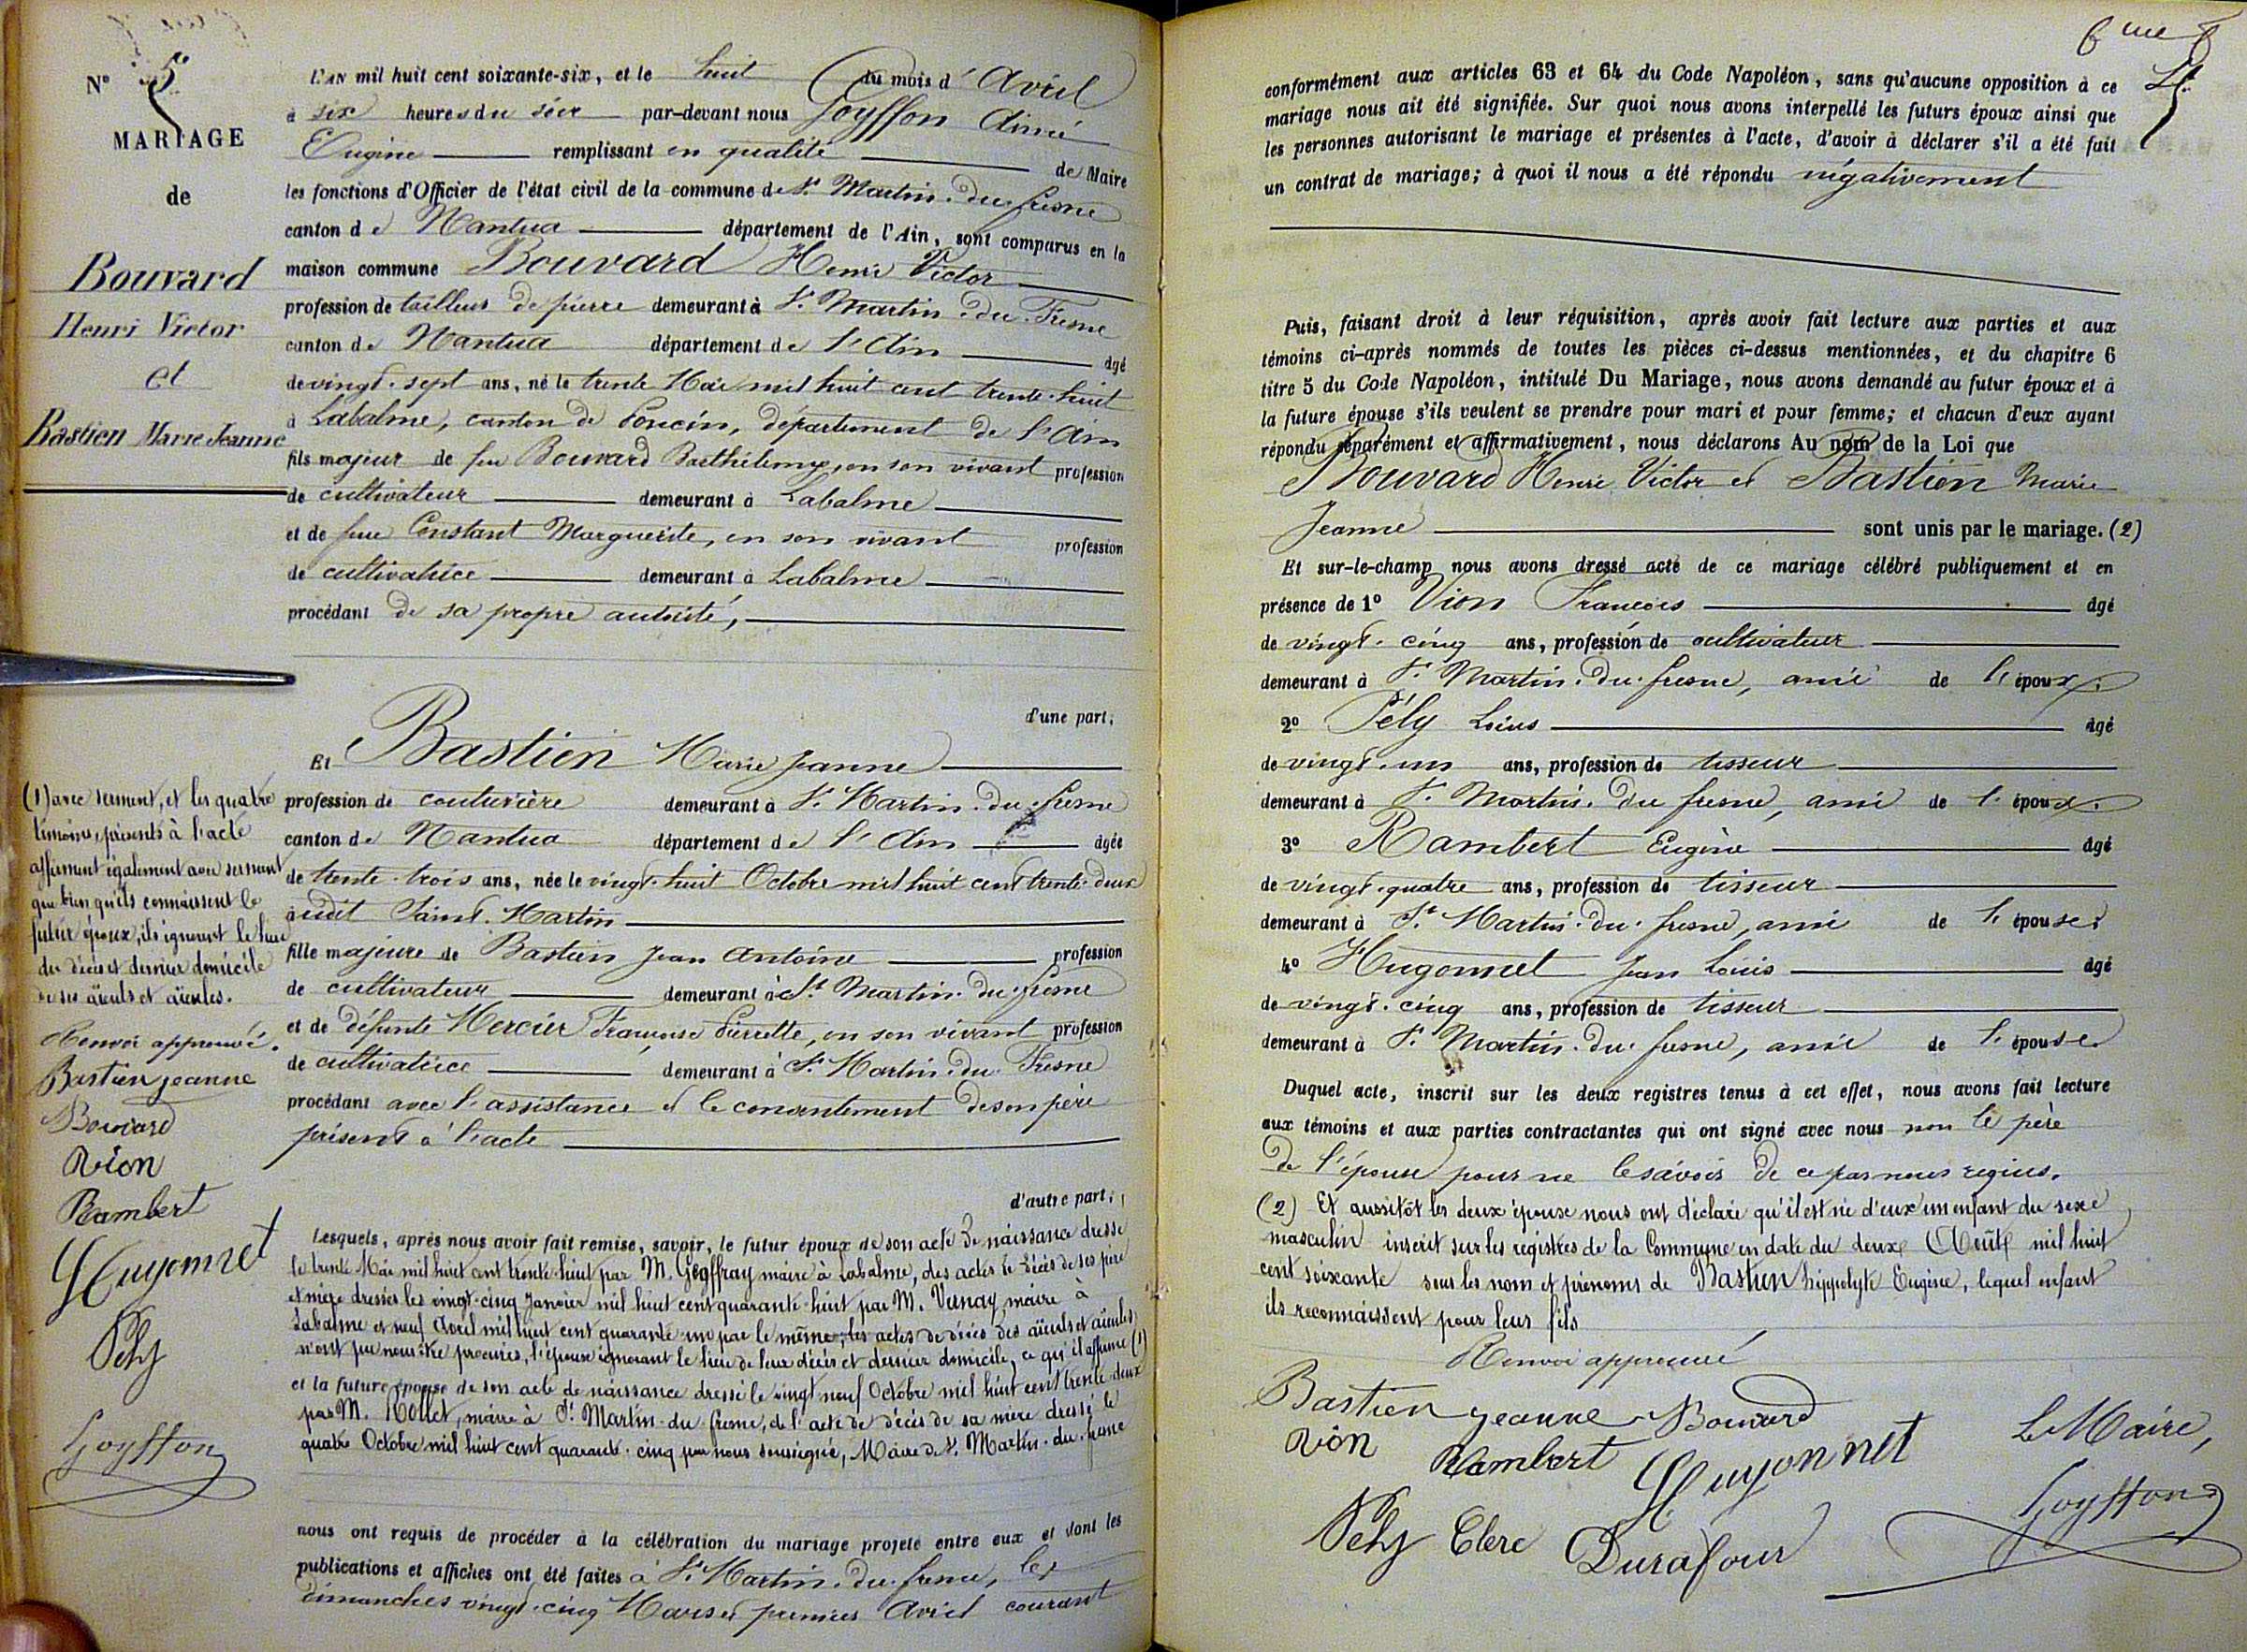 N° 5
MARIAGE
de
Bouvard
Henri Victor
et
Bastien Marie Jeanne
L'AN mil huit cent soixante-six, et le huit du mois d'Avril
à six heures du soir par-devant nous Goyffon Aimé
Eugine remplissant en qualité de Maire
les fonctions d'Officier de l'état civil de la commune de St Martin-du-fresne
canton de Nantua département de l'Ain, sont comparus en la
maison commune Bouvard Henri Victor
profession de tailleur de pierre demeurant à St Martin-du-Fresne
canton de Nantua département de l'Ain âgé
de vingt-sept ans, né le trente Mai mil huit cent trente-huit
à Labalme, canton de Poncin, département de l'Ain
fils majeur de feu Bouvard Barthélemy, en son vivant profession
de cultivateur demeurant à Labalme
et de feue Constant Marguerite, en son vivant profession
de cultivatrice demeurant à Labalme
procédant de sa propre autorité,
d'une part;
Et Bastien Marie Jeanne
profession de couturière demeurant à St Martin-du-fresne
canton de Nantua département de l'Ain âgée
de trente-trois ans, née le vingt-huit Octobre mil huit cent trente-deux
audit Saint-Martin
fille majeure de Bastien Jean Antoine profession
de cultivateur demeurant à St Martin-du-fresne
et de défunte Mercier Françoise Pierrette, en son vivant profession
de cultivatrice demeurant à St Martin-du-Fresne
procédant avec l'assistance et le consentement de son père
présent à l'acte
d'autre part;
Lesquels, après nous avoir fait remise, savoir, le futur époux de son acte de naissance dressé
le trente Mai mil huit cent trente-huit par M. Geoffray maire à Labalme, des actes de décès de ses père
et mère dressés les vingt-cinq Janvier mil huit cent quarante-huit par M. Vernay, maire à
Labalme et neuf Avril mil huit cent quarante-un par le même, les actes de décès des aïeuls et aïeules
n'ont pu nous être procurés, l'époux ignorant le lieu de leur décès et dernier domicile, ce qu'il affirme (1)
et la future épouse de son acte de naissance dressé le vingt neuf Octobre mil huit cent trente-deux
par M. Hollet, maire à St Martin-du-fresne, de l'acte de décès de sa mère dressé le
quatre Octobre mil huit cent quarante-cinq par nous soussigné, Maire de St Martin-du-fresne
nous ont requis de procéder à la célébration du mariage projeté entre eux et dont les
publications et affiches ont été faites à St Martin-du-fresne, les
dimanches vingt-cinq Mars et premier Avril courant
(1) avec serment, et les quatre
témoins, présents à l'acte
affirment également avec serment
que bien qu'ils connaissent le
futur époux, ils ignorent le lieu
du décès et dernier domicile
de ses aïeuls et aïeules.
Renvoi approuvé.
Bastien jeanne
Bouvard
Vion
Rambert
Huyonnet
Pely
Goyffon
6me f
conformément aux articles 63 et 64 du Code Napoléon, sans qu'aucune opposition à ce
mariage nous ait été signifiée. Sur quoi nous avons interpellé les futurs époux ainsi que
les personnes autorisant le mariage et présentes à l'acte, d'avoir à déclarer s'il a été fait
un contrat de mariage; à quoi il nous a été répondu négativement
Puis, faisant droit à leur réquisition, après avoir fait lecture aux parties et aux
témoins ci-après nommés de toutes les pièces ci-dessus mentionnées, et du chapitre 6
titre 5 du Code Napoléon, intitulé Du Mariage, nous avons demandé au futur époux et à
la future épouse s'ils veulent se prendre pour mari et pour femme; et chacun d'eux ayant
répondu séparément et affirmativement, nous déclarons Au nom de la Loi que
Bouvard Henri Victor et Bastien Marie
Jeanne sont unis par le mariage. (2)
Et sur-le-champ nous avons dressé acte de ce mariage célébré publiquement et en
présence de 1° Vion Francois âgé
de vingt-cinq ans, profession de cultivateur
demeurant à St Martin-du-fresne, ami de l'époux.
2° Pély Loius âgé
de vingt-un ans, profession de tisseur
demeurant à St Martin-du fresne, ami de l'époux.
3° Rambert Eugène âgé
de vingt-quatre ans, profession de tisseur
demeurant à St Martin-du-fresne, ami de l'épouse.
4° Hugonnet Jean Louis âgé
de vingt-cinq ans, profession de tisseur
demeurant à St Martin-du-fresne, ami de l'épouse
Duquel acte, inscrit sur les deux registres tenus à cet effet, nous avons fait lecture
aux témoins et aux parties contractantes qui ont signé avec nous non le père
de l'épouse pour ne le savoir de ce par nous requis.
(2) Et aussitôt les deux époux nous ont déclaré qu'il est né d'eux un enfant du sexe
masculin inscrit sur les registres de la Commune en date du deux Août mil huit
cent soixante sous les nom et prénoms de Bastien hippolyte Eugène, lequel enfant
ils reconnaissent pour leur fils
Renvoi approuvé
Bastien jeanne Bouvard
Vion Rambert Huyonnet Le Maire,
Pely Clerc Durafour Goyffon